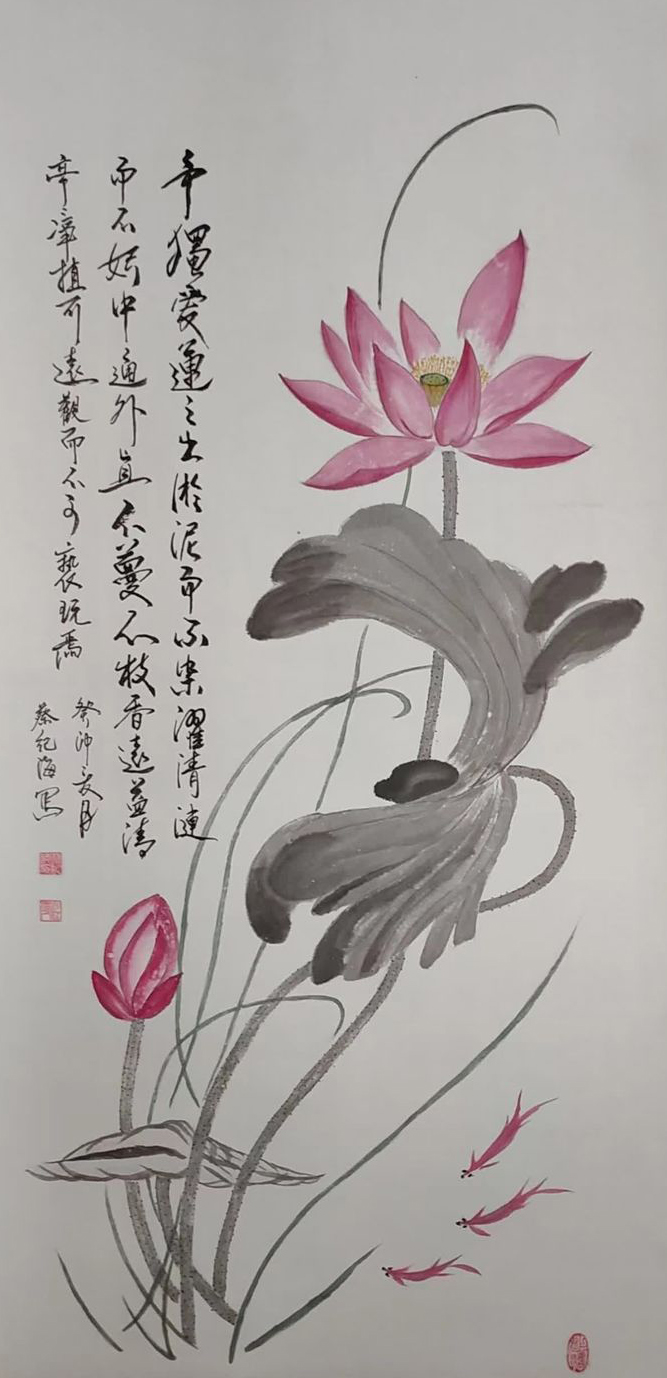 予獨愛蓮之出淤泥而不染濯清漣
而不妖中通外直不蔓不枝香遠益清
亭淨植可遠觀而不可褻玩焉
癸卯夏月
蔡纪海写